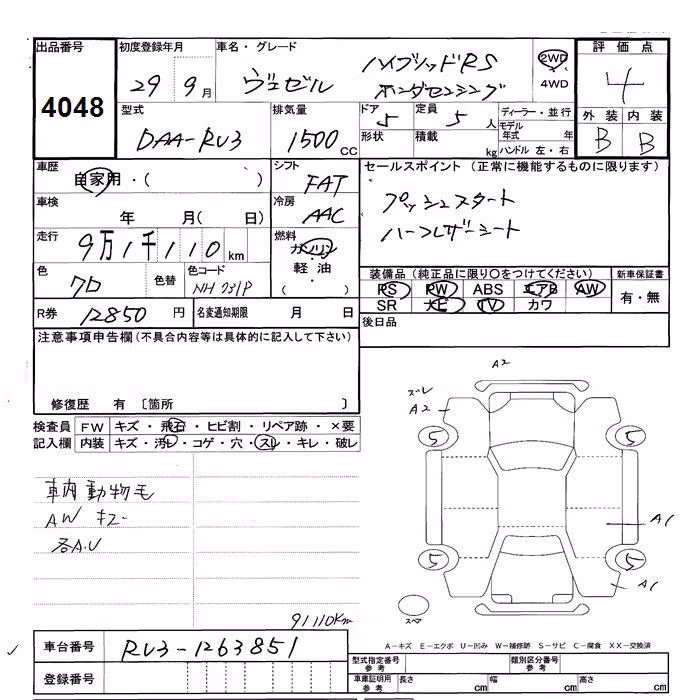 出品番号 初度登録年月 車名・グレード ハイブリッドRS 2WD 評価点
4048 29 9月 ヴェゼル ホンダセンシング 4WD 4
型式 排気量 ドア 定員 ディーラー・並行 外装 内装
DAA-RU3 1500cc 5 5人 モデル年式 年 B B
形状 積載 kg ハンドル 左・右
車歴 シフト セールスポイント(正常に機能するものに限ります)
自家用・( ) FAT プッシュスタート
車検 冷房 ハーフレザーシート
年 月( 日) AAC
走行 燃料
9万1千110km ガソリン
色 色替 色コード 軽油 装備品(純正品に限り○をつけてください) 新車保証書
クロ NH731P ( ) PS PW ABS エアB AW 有・無
SR ナビ TV カワ
R券 12850円 名変通知期限 月 日 後日品
注意事項申告欄(不具合内容等は具体的に記入して下さい)
修復歴 有 〔箇所 〕
検査員 FW キズ・飛石・ヒビ割・リペア跡・×要
記入欄 内装 キズ・汚レ・コゲ・穴・スレ・キレ・破レ
A2
ズレ
A2
5 5
車内動物毛
AW キズー
各A.U
A1
5 5
A1
スペア
91110km
車台番号 RU3-1263851
登録番号
A-キズ E-エクボ U-凹み W-補修跡 S-サビ C-腐食 XX-交換済
型式指定番号 参考 類別区分番号 参考
車庫証明用 参考 長さ cm 幅 cm 高さ cm